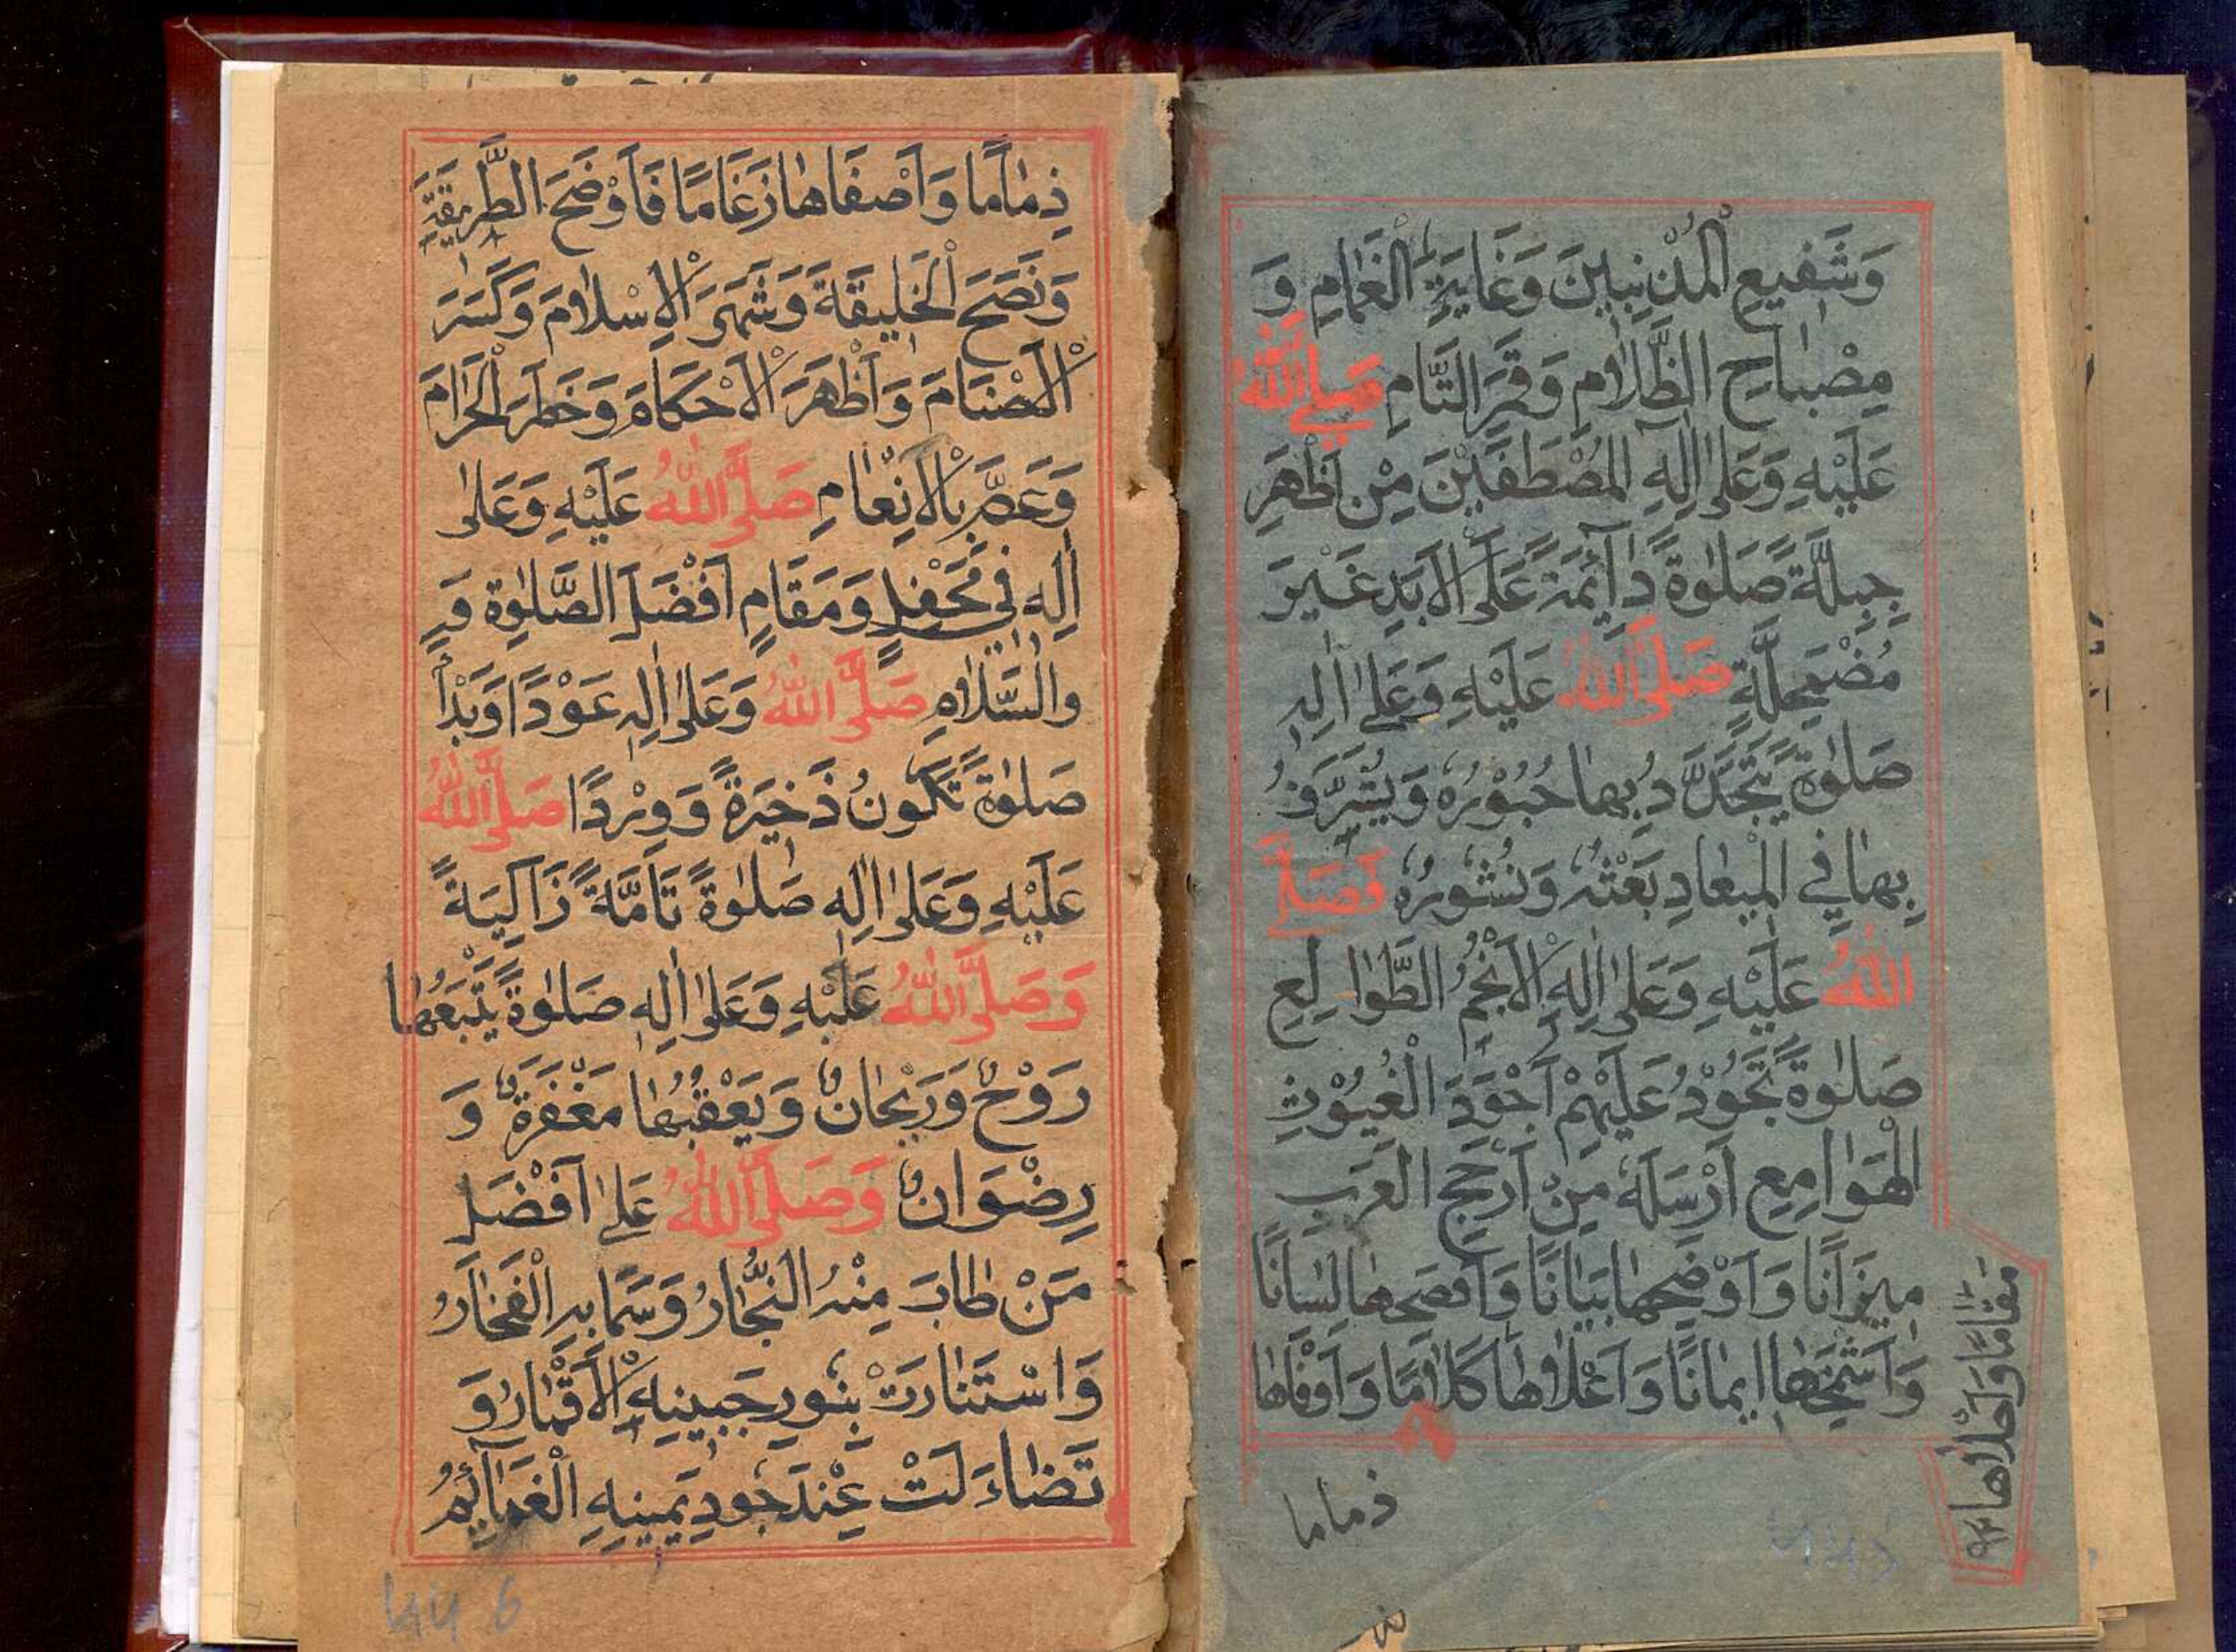 وَشَفِيعِ الْمُذْنِبِينَ وَغَايَةِ الْغَمَامِ وَ
مِصْبَاحِ الظَّلَامِ وَقَمَرِ التَّمَامِ صَلَّى اللّٰهُ
عَلَيْهِ وَعَلٰى اٰلِهِ الْمُصْطَفَيْنَ مِنْ اَظْهَرِ
جِبِلَّةٍ صَلٰوةً دَآئِمَةً عَلَى الْاَبَدِ غَيْرَ
مُضْمَحِلَّةٍ صَلَّى اللّٰهُ عَلَيْهِ وَعَلٰى اٰلِهِ
صَلٰوةً يَتَجَدَّدُ بِهَا حُبُوْرُهُ وَيُشَرَّفُ
بِهَا فِي الْمِيعَادِ بَعْثُهُ وَنُشُورُهُ فَصَلَّى
اللّٰهُ عَلَيْهِ وَعَلٰى اٰلِهِ الْاَنْجُمِ الطَّوَالِعِ
صَلٰوةً تَجُوْدُ عَلَيْهِمْ اَجْوَدَ الْغُيُوْثِ
الْهَوَامِعِ اَرْسَلَهُ مِنْ اَرْجَحِ الْعَرَبِ
مِيزَانًا وَاَوْضَحِهَا بَيَانًا وَاَفْصَحِهَا لِسَانًا
وَاَشْمَخِهَا اِيمَانًا وَاَعْلَاهَا كَلَامًا وَاَوْفَاهَا
مَقَامًا وَاَحْلَاهَا
ذماما
ذِمَامًا وَاَصْفَاهَا رَغَامًا فَاَوْضَحَ الطَّرِيقَةَ
وَنَصَحَ الْخَلِيقَةَ وَشَهَرَ الْاِسْلَامَ وَكَسَرَ
الْاَصْنَامَ وَاَظْهَرَ الْاَحْكَامَ وَحَظَرَ الْحَرَامَ
وَعَمَّ بِالْاِنْعَامِ صَلَّى اللّٰهُ عَلَيْهِ وَعَلٰى
اٰلِهِ فِي مَحْفِلٍ وَمَقَامٍ اَفْضَلَ الصَّلٰوةِ
وَالسَّلَامِ صَلَّى اللّٰهُ وَعَلٰى اٰلِهِ عَوْدًا وَبَدْأً
صَلٰوةً تَكُونُ ذَخِيرَةً وَوِرْدًا صَلَّى اللّٰهُ
عَلَيْهِ وَعَلٰى اٰلِهِ صَلٰوةً تَامَّةً زَاكِيَةً
وَصَلَّى اللّٰهُ عَلَيْهِ وَعَلٰى اٰلِهِ صَلٰوةً يَتْبَعُهَا
رَوْحٌ وَرَيْحَانٌ وَيَعْقُبُهَا مَغْفِرَةٌ وَ
رِضْوَانٌ وَصَلَّى اللّٰهُ عَلٰى اَفْضَلِ
مَنْ طَابَ مِنْهُ النِّجَارُ وَسَمَا بِهِ الْفَخَارُ
وَاسْتَنَارَتْ بِنُورِ جَبِينِهِ الْاَقْمَارُ وَ
تَضَاءَلَتْ عِنْدَ جُودِ يَمِينِهِ الْغَمَآئِمُ